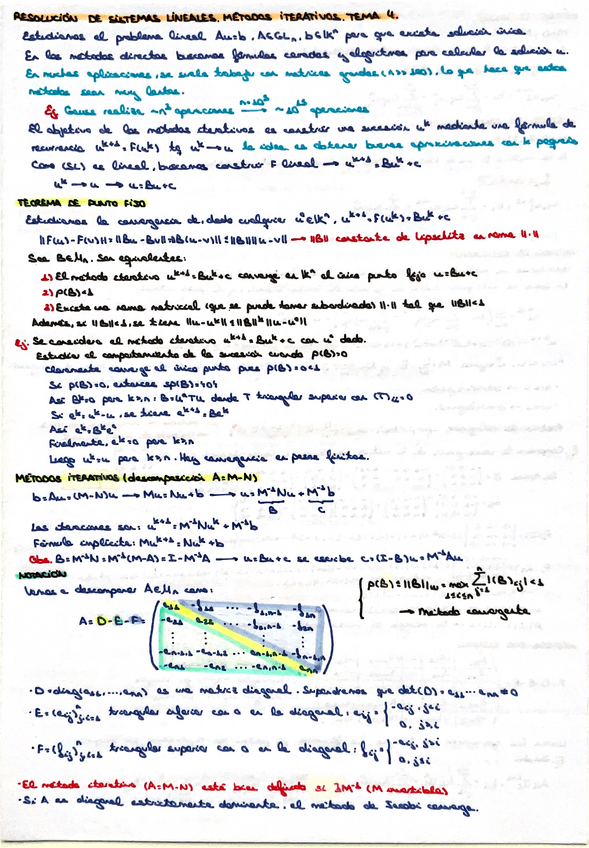 RESOLUCIÓN DE SISTEMAS LINEALES. MÉTODOS ITERATIVOS. TEMA 4.
Estudiamos el problema lineal Au=b, A∈GLₙ, b∈𝕂ⁿ para que exista solución única.
En los métodos directos buscamos fórmulas cerradas y algoritmos para calcular la solución u.
En muchas aplicaciones, se suele trabajar con matrices grandes (n>>100), lo que hace que estos
métodos sean muy lentos.
Ej Gauss realiza ~n³ operaciones → ~10¹⁵ operaciones
El objetivo de los métodos iterativos es construir una sucesión uᵏ mediante una fórmula de
recurrencia uᵏ⁺¹=F(uᵏ) tq uᵏ→u la idea es obtener buenas aproximaciones con k pequeño
Como (SL) es lineal, buscamos construir F lineal → uᵏ⁺¹=Buᵏ+c
uᵏ→u → u=Bu+c
TEOREMA DE PUNTO FIJO
Estudiamos la convergencia de, dado cualquier u⁰∈𝕂ⁿ, uᵏ⁺¹=F(uᵏ)=Buᵏ+c
||F(u)-F(v)||=||Bu-Bv||=||B(u-v)||≤||B||||u-v|| → ||B|| constante de Lipschitz en norma ||·||
Sea B∈Mₙ. Son equivalentes:
1) El método iterativo uᵏ⁺¹=Buᵏ+c converge en 𝕂ⁿ al único punto fijo u=Bu+c
2) ρ(B)<1
3) Existe una norma matricial (que se puede tomar subordinada) ||·|| tal que ||B||<1
Además, si ||B||<1, se tiene ||u-uᵏ||≤||B||ᵏ||u-u⁰||
Ej. Se considera el método iterativo uᵏ⁺¹=Buᵏ+c con u⁰ dado.
Estudiar el comportamiento de la sucesión cuando ρ(B)=0
Claramente converge al único punto pues ρ(B)=0<1
Si ρ(B)=0, entonces sp(B)={0}
Así Bᵏ=0 para k≥n: B=U*TU donde T triangular superior con (T)ᵢᵢ=0
Si eᵏ=uᵏ-u, se tiene eᵏ⁺¹=Beᵏ
Así eᵏ=Bᵏe⁰
Finalmente, eᵏ=0 para k≥n
Luego uᵏ=u para k≥n. Hay convergencia en pasos finitos.
MÉTODOS ITERATIVOS (descomposición A=M-N)
b=Au=(M-N)u → Mu=Nu+b → u=M⁻¹Nu+M⁻¹b
B C
Las iteraciones son: uᵏ⁺¹=M⁻¹Nuᵏ+M⁻¹b
Fórmula explícita: Muᵏ⁺¹=Nuᵏ+b
Obs. B=M⁻¹N=M⁻¹(M-A)=I-M⁻¹A → u=Bu+c se escribe c=(I-B)u=M⁻¹Au
NOTACIÓN
Vamos a descomponer A∈Mₙ como:
ρ(B)≤||B||∞=max Σ|(B)ᵢⱼ|<1
1≤i≤n j=1
→ método convergente
A=D-E-F=
·D=diag(a₁₁,...,aₙₙ) es una matriz diagonal. Supondremos que det(D)=a₁₁···aₙₙ≠0
·E=(eᵢⱼ)ⁿᵢ,ⱼ₌₁ triangular inferior con 0 en la diagonal: eᵢⱼ={-aᵢⱼ, j<i
0, j≥i
·F=(fᵢⱼ)ⁿᵢ,ⱼ₌₁ triangular superior con 0 en la diagonal: fᵢⱼ={-aᵢⱼ, j>i
0, j≤i
·El método iterativo (A=M-N) está bien definido si ∃M⁻¹ (M invertible)
·Si A es diagonal estrictamente dominante, el método de Jacobi converge.